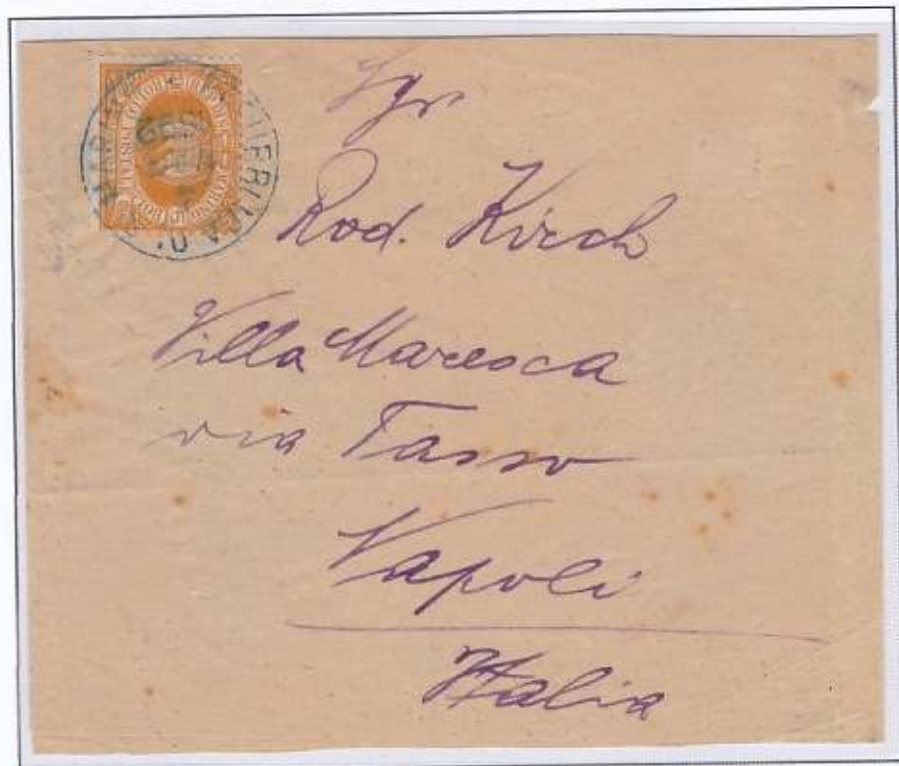 Sgr
Rod. Kirch
Villa Maresca
via Tasso
Napoli
Italia